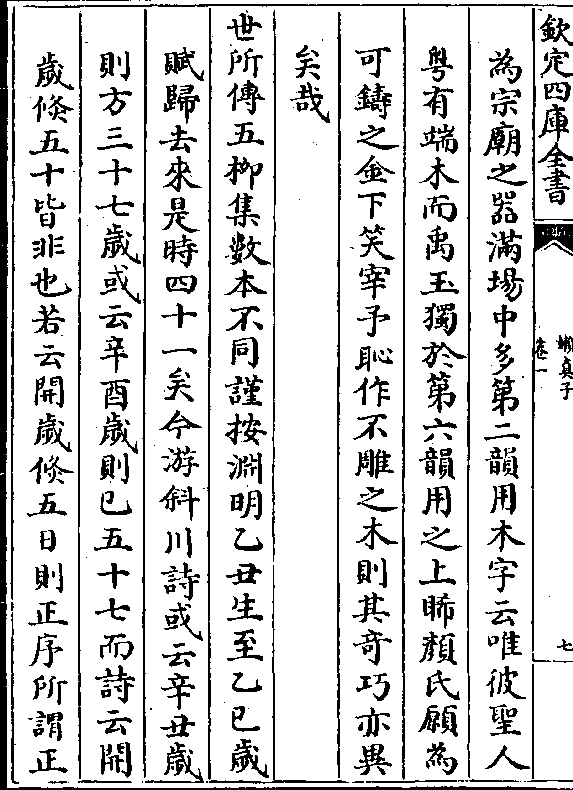 欽定四庫全書
嬾真子
卷一
七
為宗廟之器滿場中多第二韻用木字云唯彼聖人
粤有端木而禹玉獨於第六韻用之上睎顔氏願為
可鑄之金下笑宰予恥作不雕之木則其奇巧亦異
矣哉
世所傳五柳集數本不同謹按淵明乙丑生至乙巳歲
賦歸去來是時四十一矣今游斜川詩或云辛丑歲
則方三十七歲或云辛酉歲則已五十七而詩云開
歲倐五十皆非也若云開歲倐五日則正序所謂正